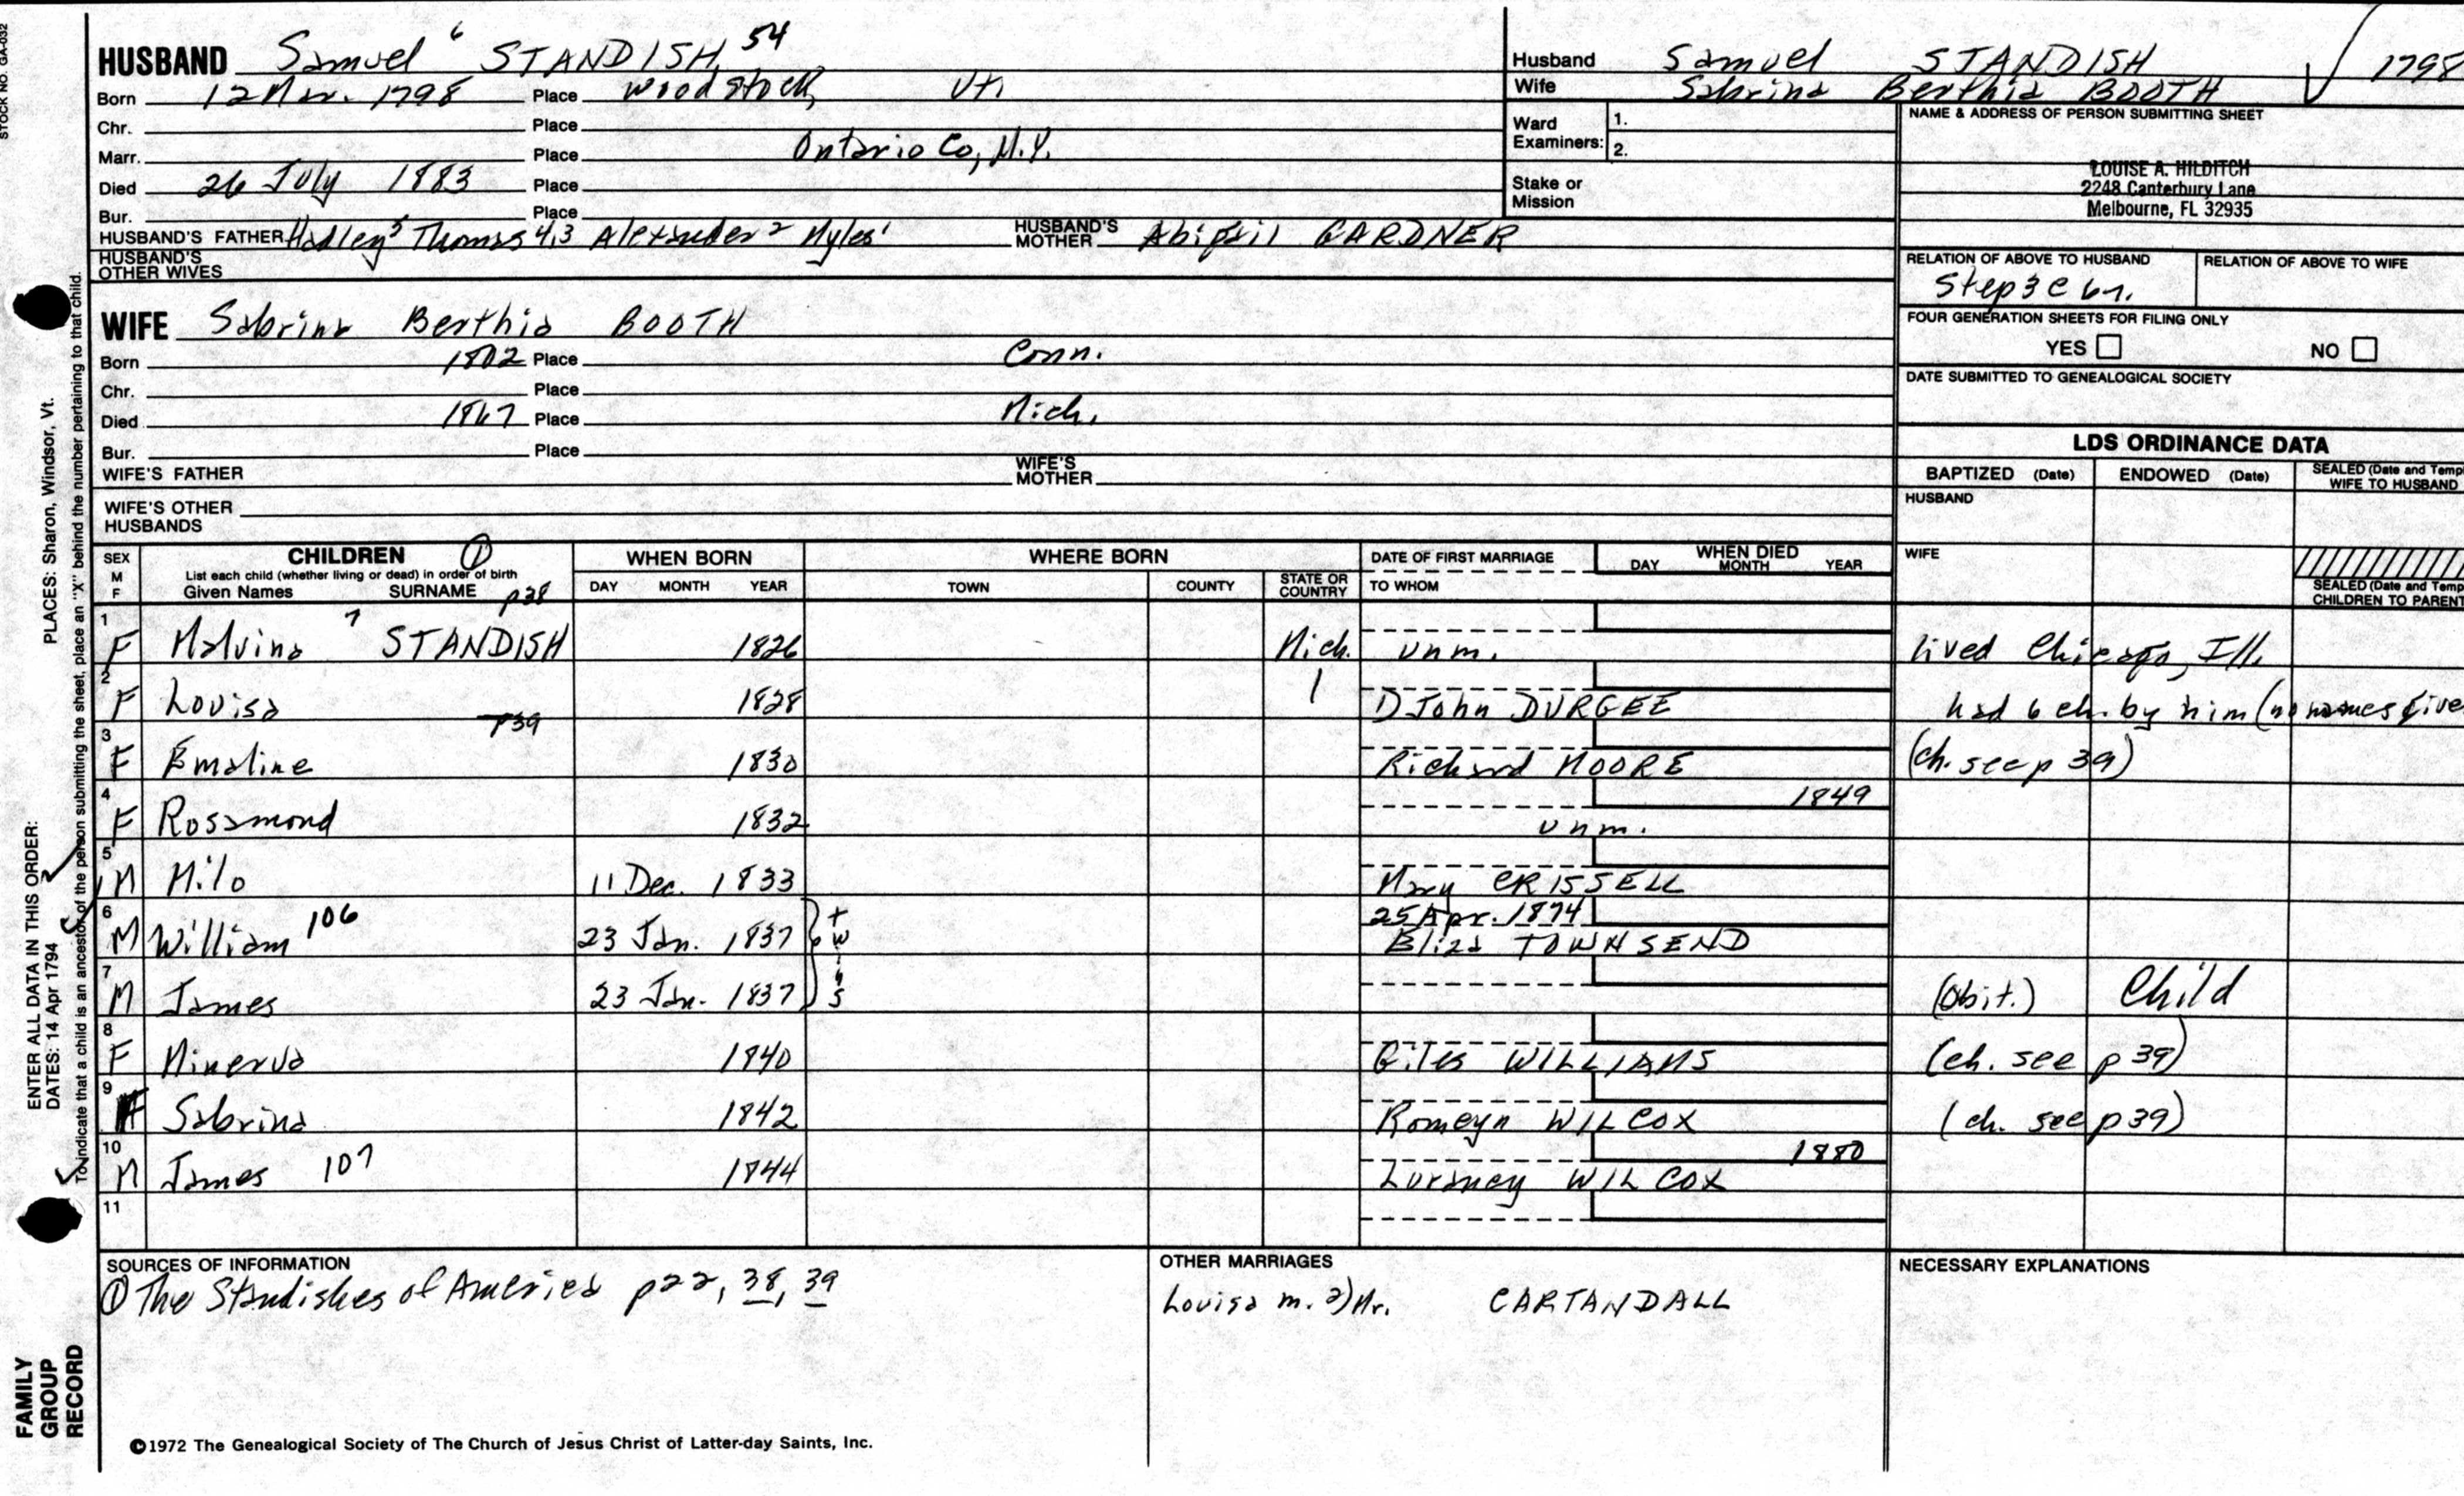 STOCK NO. GA-032
HUSBAND Samuel 6 STANDISH 54
Born 12 Mar. 1798 Place Woodstock, Vt.
Chr. Place
Marr. Place Ontario Co, N.Y.
Died 26 July 1883 Place
Bur. Place
HUSBAND'S FATHER Hadley5 Thomas 4,3 Alexander2 Myles1 HUSBAND'S MOTHER Abigail GARDNER
HUSBAND'S OTHER WIVES
WIFE Sabrina Berthia BOOTH
Born 1802 Place Conn.
Chr. Place
Died 1867 Place Mich.
Bur. Place
WIFE'S FATHER WIFE'S MOTHER
WIFE'S OTHER HUSBANDS
Husband Samuel STANDISH 1798
Wife Sabrina Berthia BOOTH
Ward Examiners: 1.
2.
Stake or Mission
NAME & ADDRESS OF PERSON SUBMITTING SHEET
LOUISE A. HILDITCH
2248 Canterbury Lane
Melbourne, FL 32935
RELATION OF ABOVE TO HUSBAND RELATION OF ABOVE TO WIFE
Step 3 C 6r.
FOUR GENERATION SHEETS FOR FILING ONLY
YES NO
DATE SUBMITTED TO GENEALOGICAL SOCIETY
LDS ORDINANCE DATA
BAPTIZED (Date) ENDOWED (Date) SEALED (Date and Temp
WIFE TO HUSBAND
HUSBAND
WIFE
SEALED (Date and Temp
CHILDREN TO PARENT
SEX M F CHILDREN 1 WHEN BORN WHERE BORN DATE OF FIRST MARRIAGE WHEN DIED
List each child (whether living or dead) in order of birth
Given Names SURNAME p38 DAY MONTH YEAR TOWN COUNTY STATE OR COUNTRY TO WHOM DAY MONTH YEAR
1 F Malvina 7 STANDISH 1826 Mich. unm. lived Chicago, Ill.
2 F Louisa 1828 1) John DURGEE had 6 ch. by him (no names give
p39
3 F Emaline 1830 Richard MOORE (ch. see p 39)
4 F Rosamond 1832 1849 unm.
5 M Milo 11 Dec. 1833 Mary CRISSELL
6 M William 106 23 Jan. 1837 twins 25 Apr. 1874 Eliza TOWNSEND
7 M James 23 Jan. 1837 (obit.) Child
8 F Minerva 1840 Giles WILLIAMS (ch. see p 39)
9 F Sabrina 1842 Romeyn WILCOX (ch. see p 39)
10 M James 107 1844 1880 Luraney WILCOX
11
SOURCES OF INFORMATION
1 The Standishes of America p22, 38, 39
OTHER MARRIAGES
Louisa m. 2) Mr. CARTANDALL
NECESSARY EXPLANATIONS
©1972 The Genealogical Society of The Church of Jesus Christ of Latter-day Saints, Inc.
FAMILY GROUP RECORD
ENTER ALL DATA IN THIS ORDER:
DATES: 14 Apr 1794
PLACES: Sharon, Windsor, Vt.
To indicate that a child is an ancestor of the person submitting the sheet, place an "X" behind the number pertaining to that child.